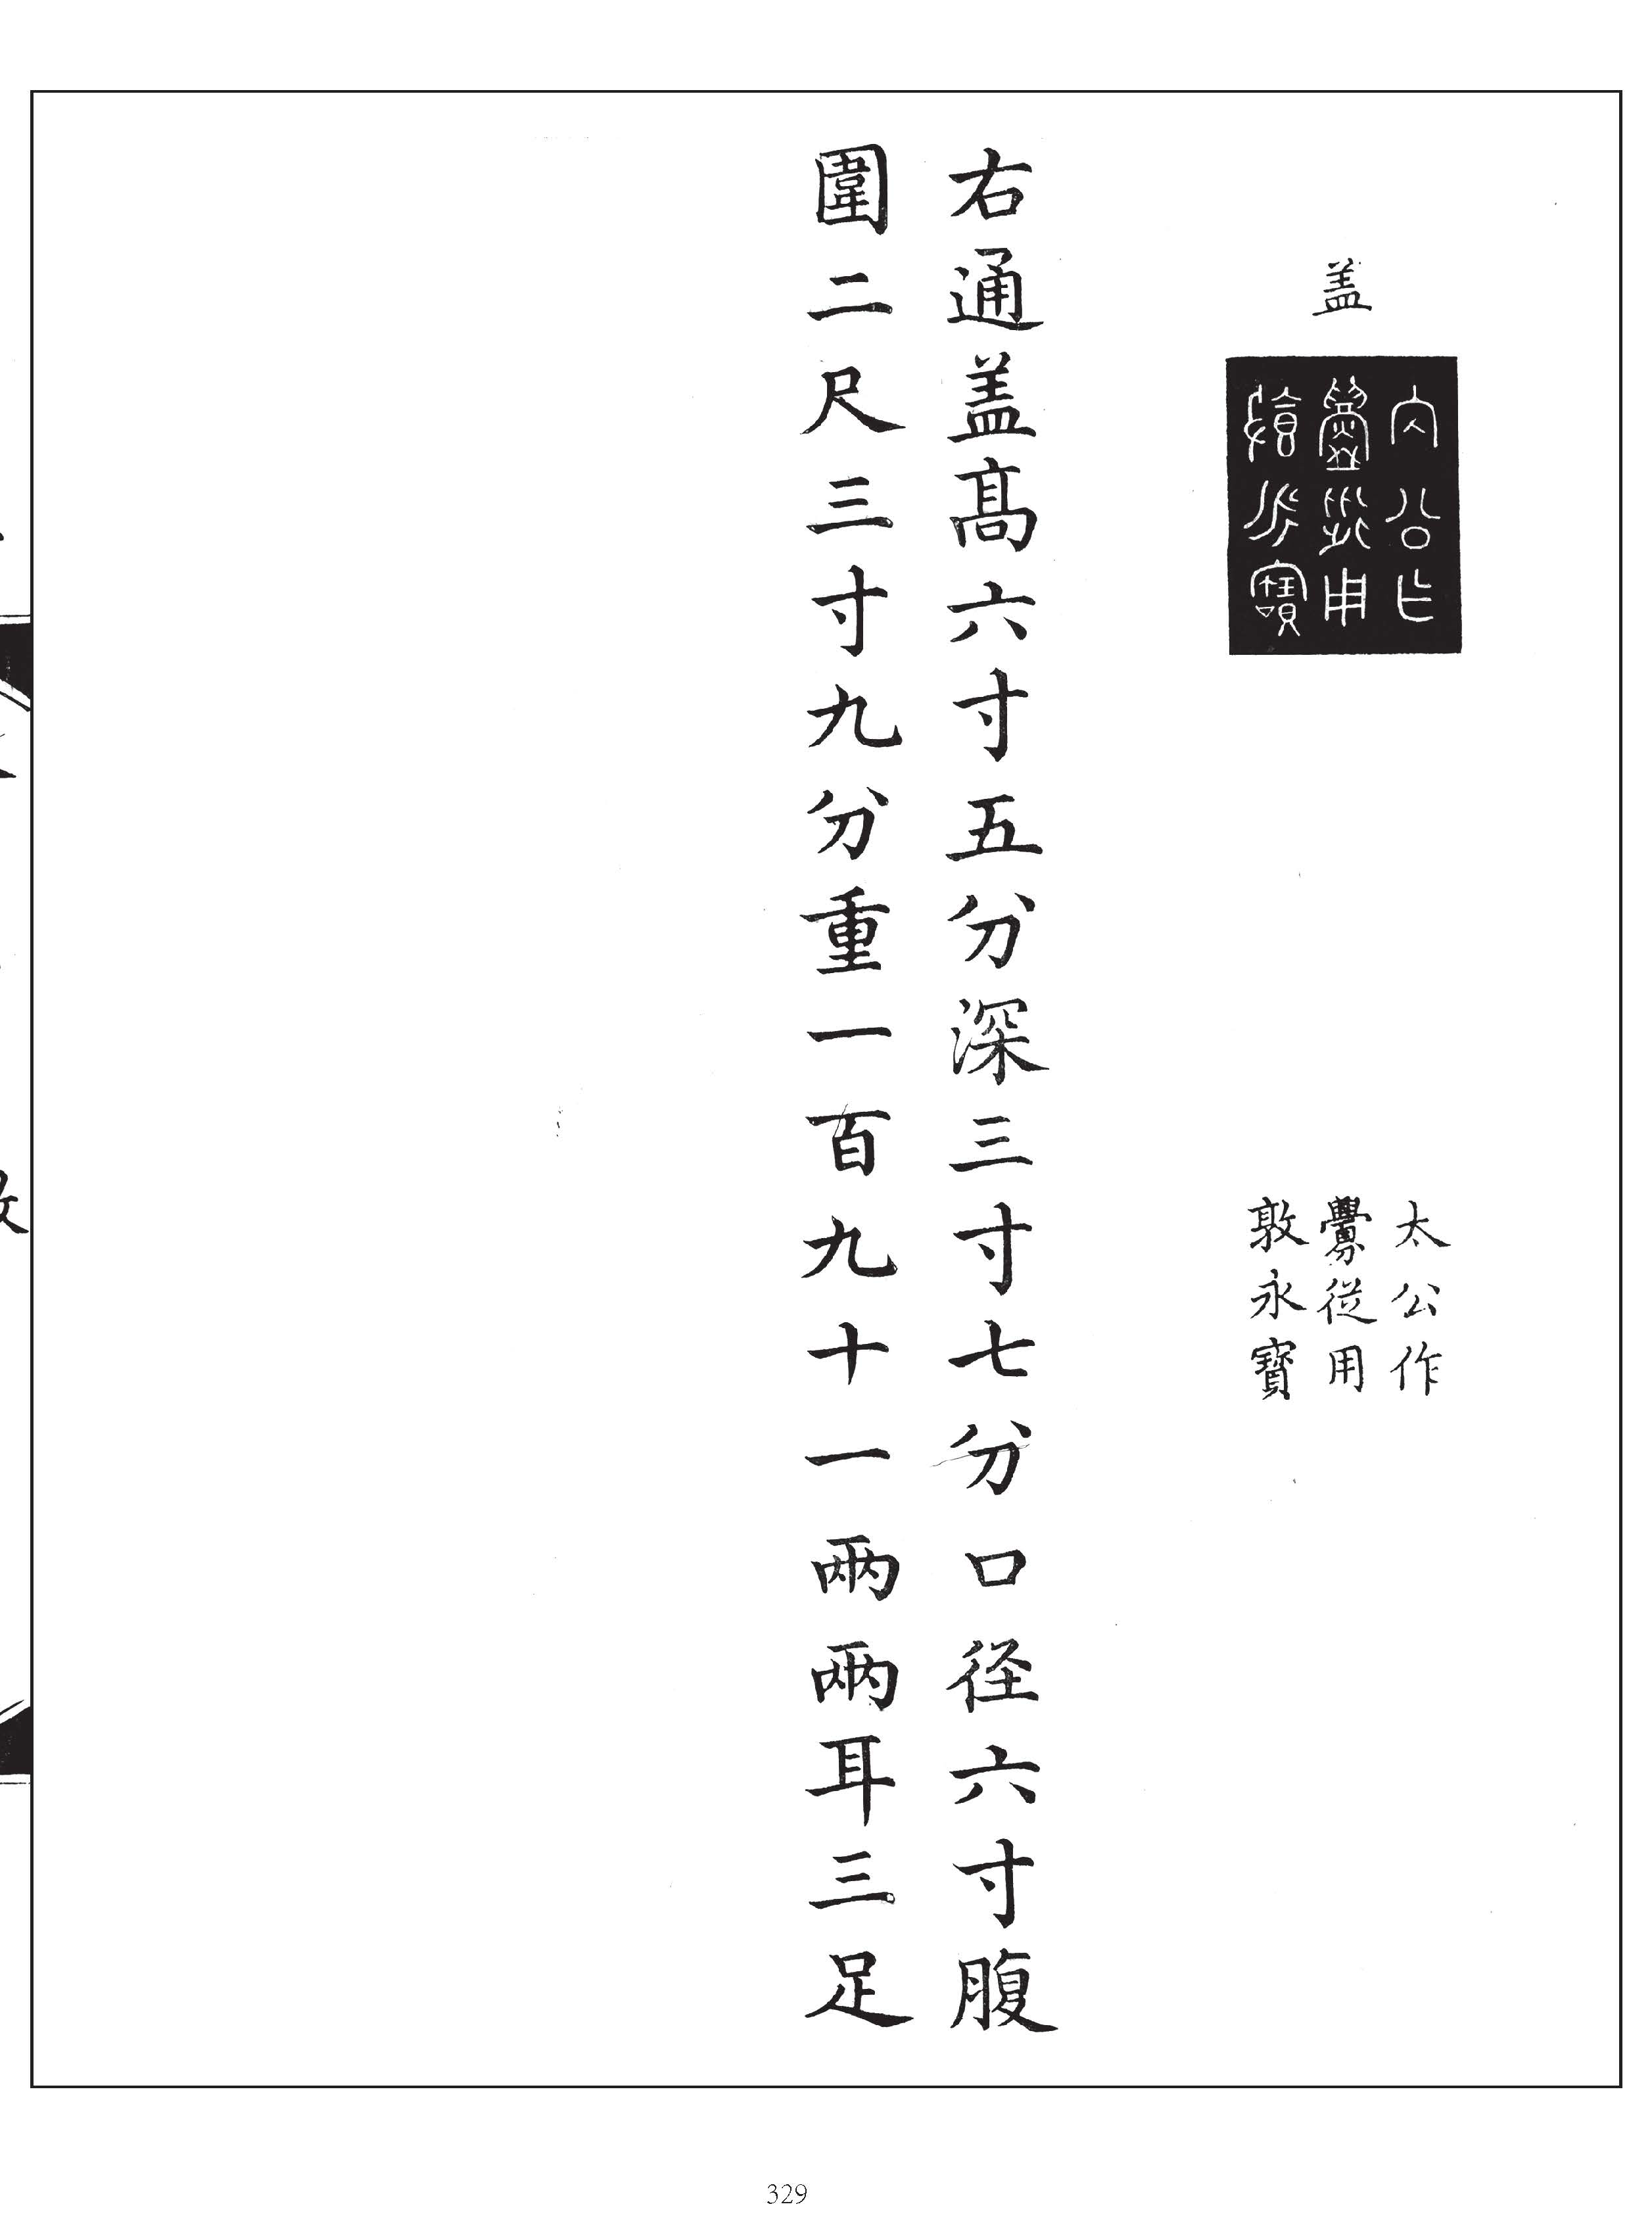 蓋
太公作
釁從用
敦永寶
右通蓋高六寸五分深三寸七分口径六寸腹
圍二尺三寸九分重一百九十一兩兩耳三足
329